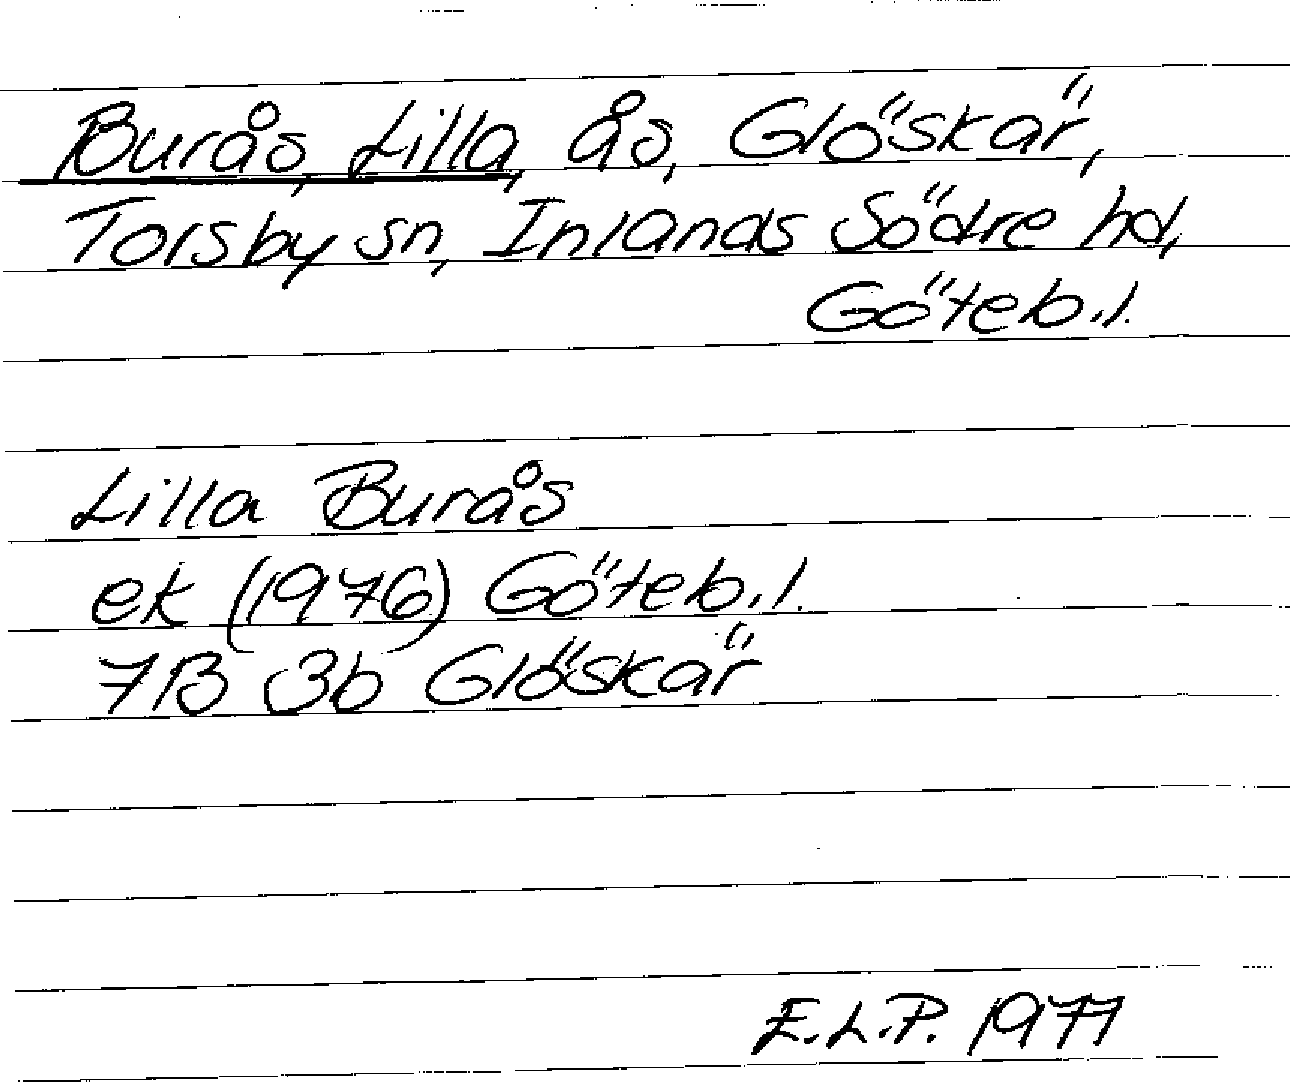 Burås, Lilla, ås, Glöskär,
Torsby sn, Inlands Södre hd,
Göteb.l.
Lilla Burås
ek (1976) Göteb.l.
7B 3b Glöskär
E.L.P. 1977